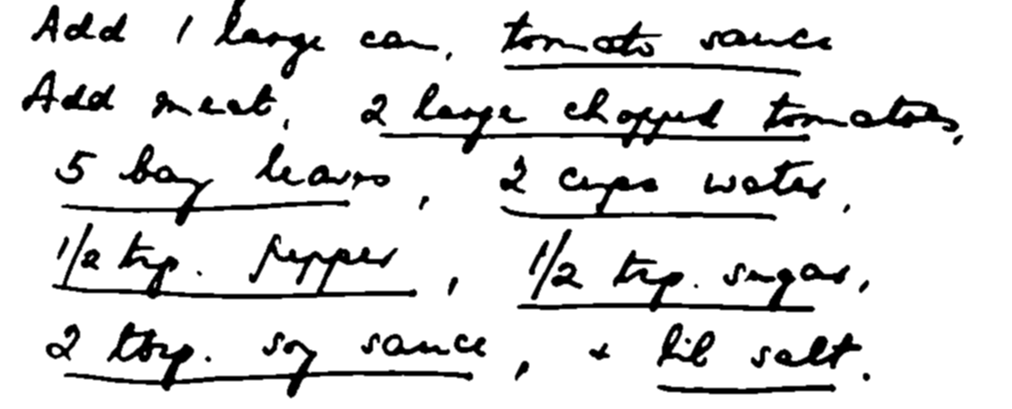 Add 1 large can, tomato sauce
Add meat, 2 large chopped tomatoes,
5 bay leaves, 2 cups water,
1/2 tsp. pepper, 1/2 tsp. sugar,
2 tbsp. soy sauce, + lil salt.